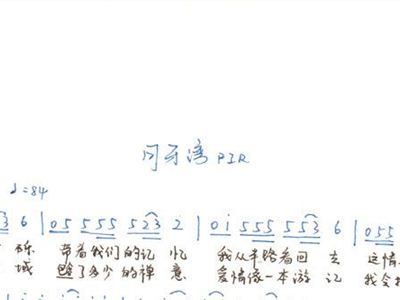 月牙湾 PIR
♩=84
3 6 | 05 555 523 2 | 0i 555 553 6 | 055
砾 带着我们的记忆 我从半路看回去 这情
城 避了多少的禅意 爱情像一本游记 我会